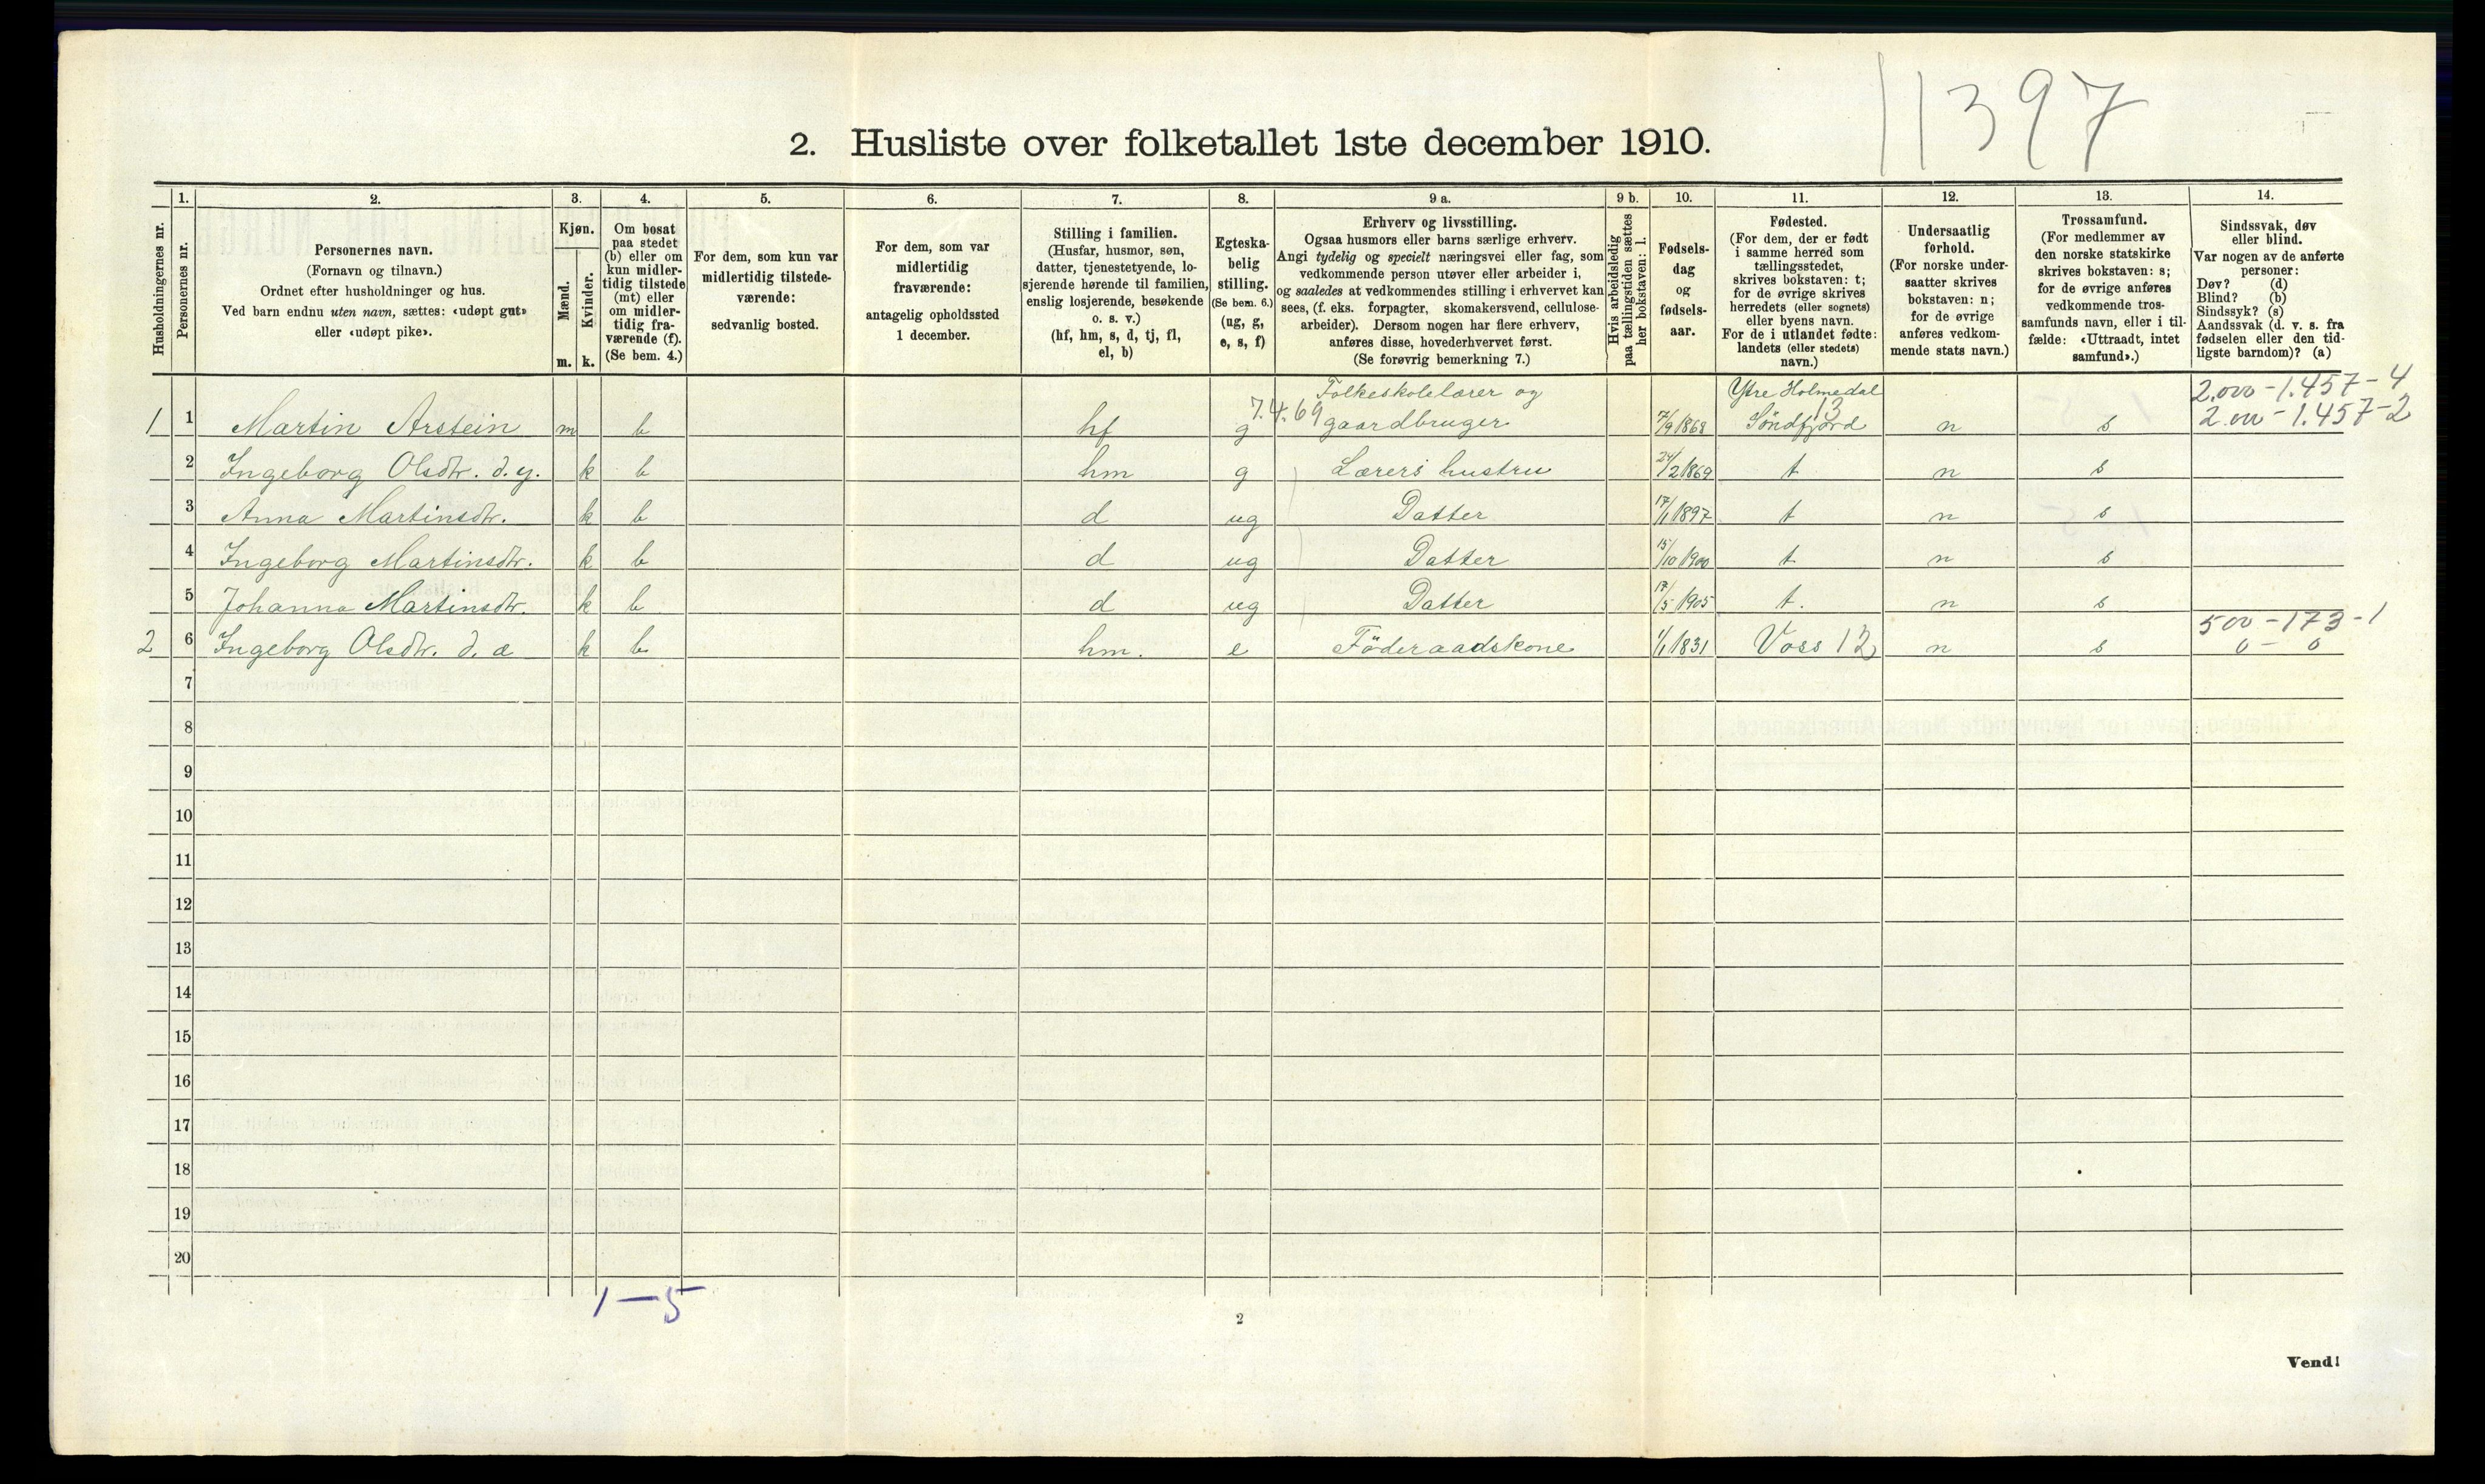 11397
2. Husliste over folketallet 1ste december 1910.
Husholdningernes nr.
1.
Personernes nr.
2.
Personernes navn.
(Fornavn og tilnavn.)
Ordnet efter husholdninger og hus.
Ved barn endnu uten navn, sættes: «udøpt gut»
eller «udøpt pike».
3.
Kjøn.
Mænd.
m.
Kvinder.
k.
4.
Om bosat
paa stedet
(b) eller om
kun midler-
tidig tilstede
(mt) eller
om midler-
tidig fra-
værende (f).
(Se bem. 4.)
5.
For dem, som kun var
midlertidig tilstede-
værende:
sedvanlig bosted.
6.
For dem, som var
midlertidig
fraværende:
antagelig opholdssted
1 december.
7.
Stilling i familien.
(Husfar, husmor, søn,
datter, tjenestetyende, lo-
sjerende hørende til familien,
enslig losjerende, besøkende
o. s. v.)
(hf, hm, s, d, tj, fl,
el, b)
8.
Egteska-
belig
stilling.
(Se bem. 6.)
(ug, g,
e, s, f)
9 a.
Erhverv og livsstilling.
Ogsaa husmors eller barns særlige erhverv.
Angi tydelig og specielt næringsvei eller fag, som
vedkommende person utøver eller arbeider i,
og saaledes at vedkommendes stilling i erhvervet kan
sees, (f. eks. forpagter, skomakersvend, cellulose-
arbeider). Dersom nogen har flere erhverv,
anføres disse, hovederhvervet først.
(Se forøvrig bemerkning 7.)
9 b.
Hvis arbeidsledig
paa tællingstiden sættes
her bokstaven: l.
10.
Fødsels-
dag
og
fødsels-
aar.
11.
Fødested.
(For dem, der er født
i samme herred som
tællingsstedet,
skrives bokstaven: t;
for de øvrige skrives
herredets (eller sognets)
eller byens navn.
For de i utlandet fødte:
landets (eller stedets)
navn.)
12.
Undersaatlig
forhold.
(For norske under-
saatter skrives
bokstaven: n;
for de øvrige
anføres vedkom-
mende stats navn.)
13.
Trossamfund.
(For medlemmer av
den norske statskirke
skrives bokstaven: s;
for de øvrige anføres
vedkommende tros-
samfunds navn, eller i til-
fælde: «Uttraadt, intet
samfund».)
14.
Sindssvak, døv
eller blind.
Var nogen av de anførte
personer:
Døv? (d)
Blind? (b)
Sindssyk? (s)
Aandssvak (d. v. s. fra
fødselen eller den tid-
ligste barndom)? (a)
Folkeskolelærer og Ytre Holmedal 2.000-1.457-4
1 1 Martin Arstein m b hf g 7.4.69 gaardbruger 7/9 1868 Söndfjord 13 n s 2.000-1.457-2
2 Ingeborg Olsdtr. d.y. k b hm g Lærers hustru 24/2 1869 t n s
3 Anna Martinsdtr. k b d ug Datter 17/1 1897 t n s
4 Ingeborg Martinsdtr. k b d ug Datter 15/10 1900 t n s
5 Johanna Martinsdtr. k b d ug Datter 17/5 1905 t. n s
500-173-1
2 6 Ingeborg Olsdtr. d. æ k b hm. e Föderaadskone 1/1 1831 Voss 12 n s 0-0
7
8
9
10
11
12
13
14
15
16
17
18
19
20
1-5
2
Vend!